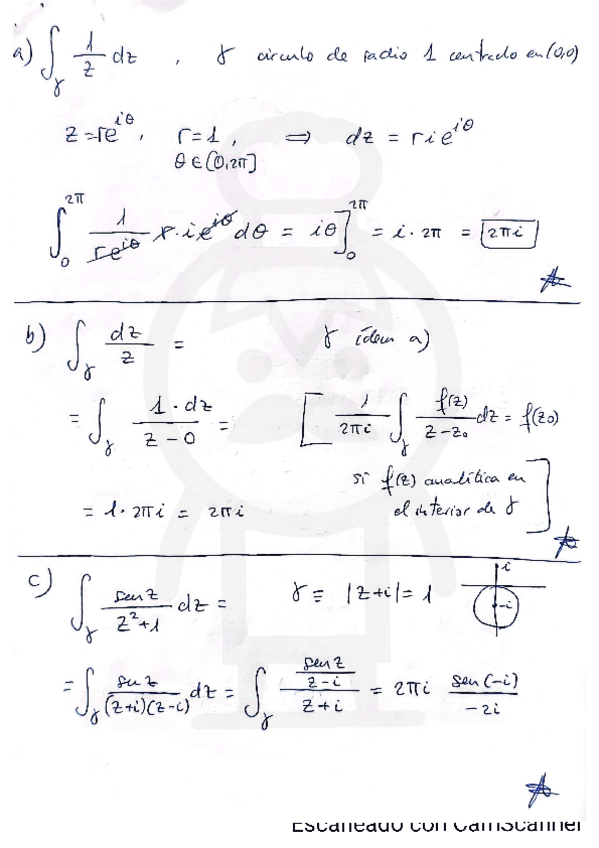 a) ∫_γ 1/z dz , γ circulo de radio 1 centrado en (0,0)
z = re^{iθ}, r = 1, ⟹ dz = r i e^{iθ}
θ ∈ [0, 2π]
∫_0^{2π} 1/(re^{iθ}) r · i e^{iθ} dθ = iθ]_0^{2π} = i · 2π = 2πi
b) ∫_γ dz/z = γ ídem a)
= ∫_γ 1 · dz/(z - 0) = [ 1/(2πi) ∫_γ f(z)/(z - z₀) dz = f(z₀)
si f(z) analítica en
= 1 · 2πi = 2πi el interior de γ ]
c) ∫_γ sen z/(z² + 1) dz = γ ≡ |z + i| = 1 i
-i
= ∫_γ sen z/((z+i)(z-i)) dz = ∫_γ (sen z/(z-i))/(z+i) = 2πi sen(-i)/(-2i)
Escaneado con CamScanner